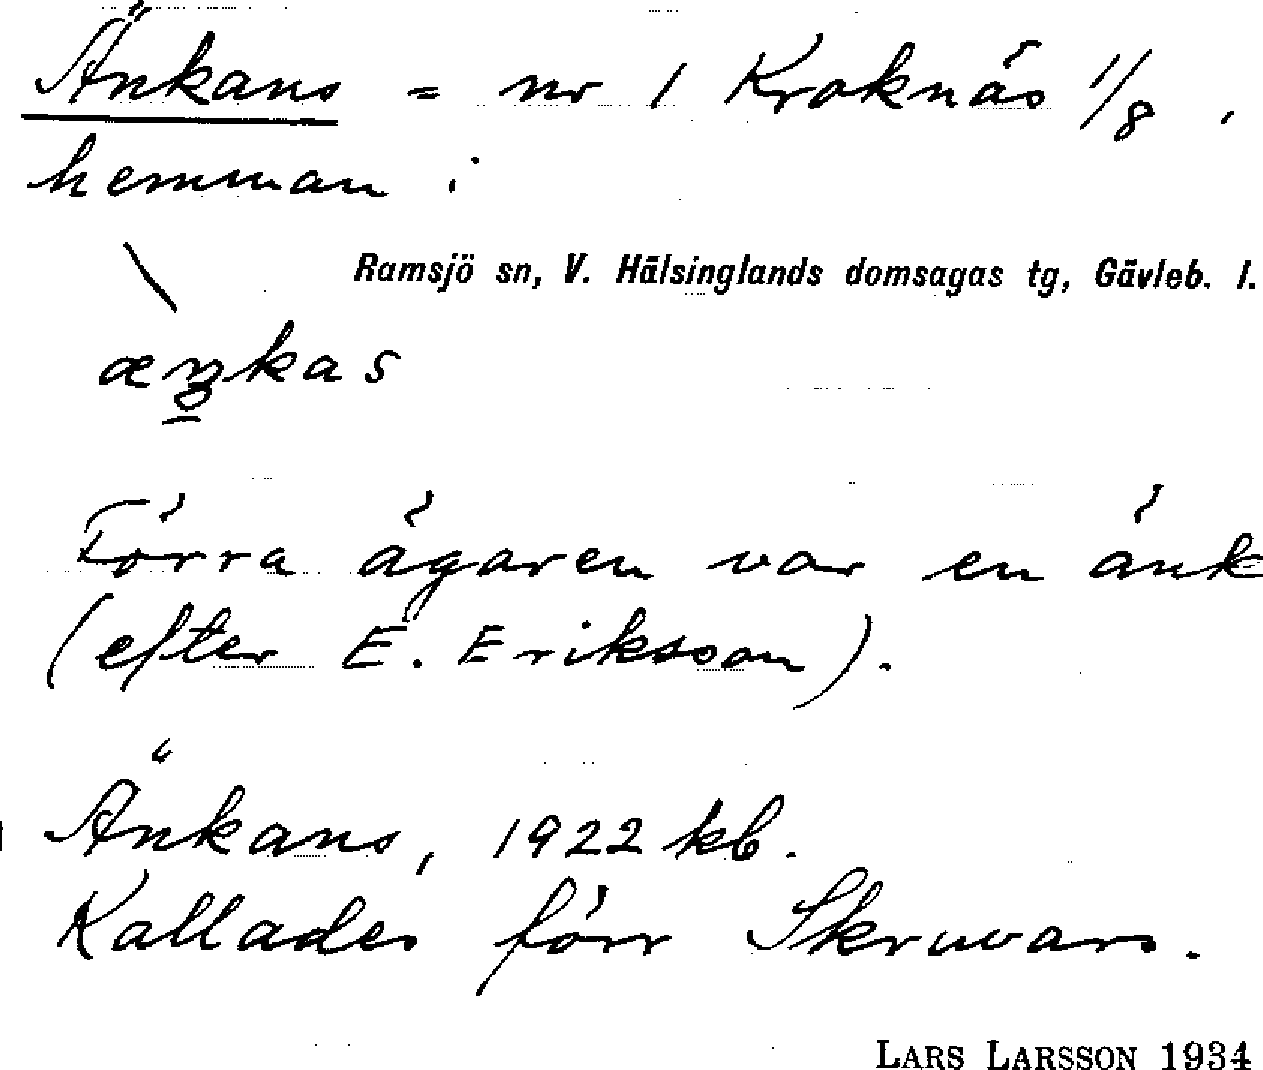 Änkans = nr 1 Kroknäs 1/8
hemman i
Ramsjö sn, V. Hälsinglands domsagas tg, Gävleb. l.
Förra ägaren var en änk
(efter E. Eriksson).
Änkans, 1922 kb.
Kallades förr Skruvars.
LARS LARSSON 1934